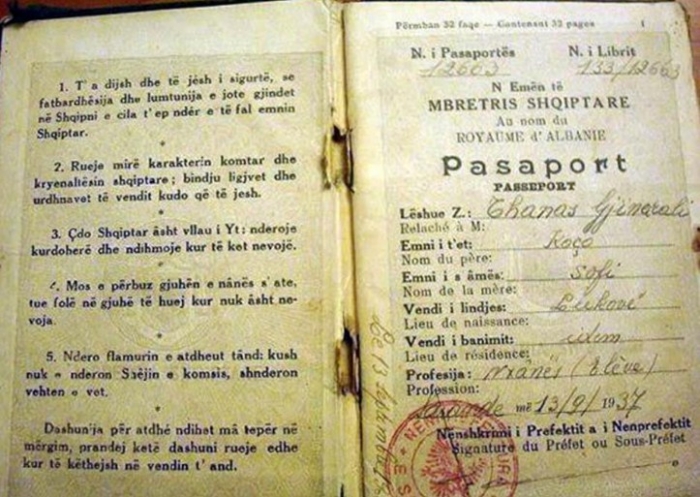 1. T'a dijsh dhe të jésh i sigurtë, se
fatbardhësija dhe lumtunija e jote gjindet
në Shqipni e cila t'ep ndér e të fal emnin
Shqiptar.
2. Rueje mirë karakterin komtar dhe
kryenaltësin shqiptare; bindju ligjvet dhe
urdhnavet të vendit kudo që të jesh.
3. Çdo Shqiptar âsht vllau i Yt: nderoje
kurdoherë dhe ndihmoje kur të ket nevojë.
4. Mos e përbuz gjuhën e nânës s'ate,
tue folë në gjuhë të huej kur nuk âsht ne-
voja.
5. Ndero flamurin e atdheut tând: kush
nuk e nderon e komsis, shnderon
vehten e vet.
Dashunija për atdhé ndihet mâ tepër në
mërgim, prandej ketë dashuni rueje edhe
kur të këthejsh në vendin t'and.
Përmban 32 faqe — Contenant 32 pages
1
N. i Pasaportës N. i Librit
12603 133/12603
N Emën të
MBRETRIS SHQIPTARE
Au nom du
ROYAUME d'ALBANIE
Pasaport
PASSEPORT
Lëshue Z.: Thanas Gjinerali
Relaché à M:
Emni i t'et: Koço
Nom du père:
Emni i s âmës: Sofi
Nom de la mère:
Vendi i lindjes: Lukovë
Lieu de naissance:
Vendi i banimit: idem
Lieu de résidence:
Profesija: Nxânës (Elève)
Profession:
Sarandë më 13/9/1937
Nënshkrimi i Prefektit a i Nenprefektit
Signature du Préfet ou Sous-Préfet